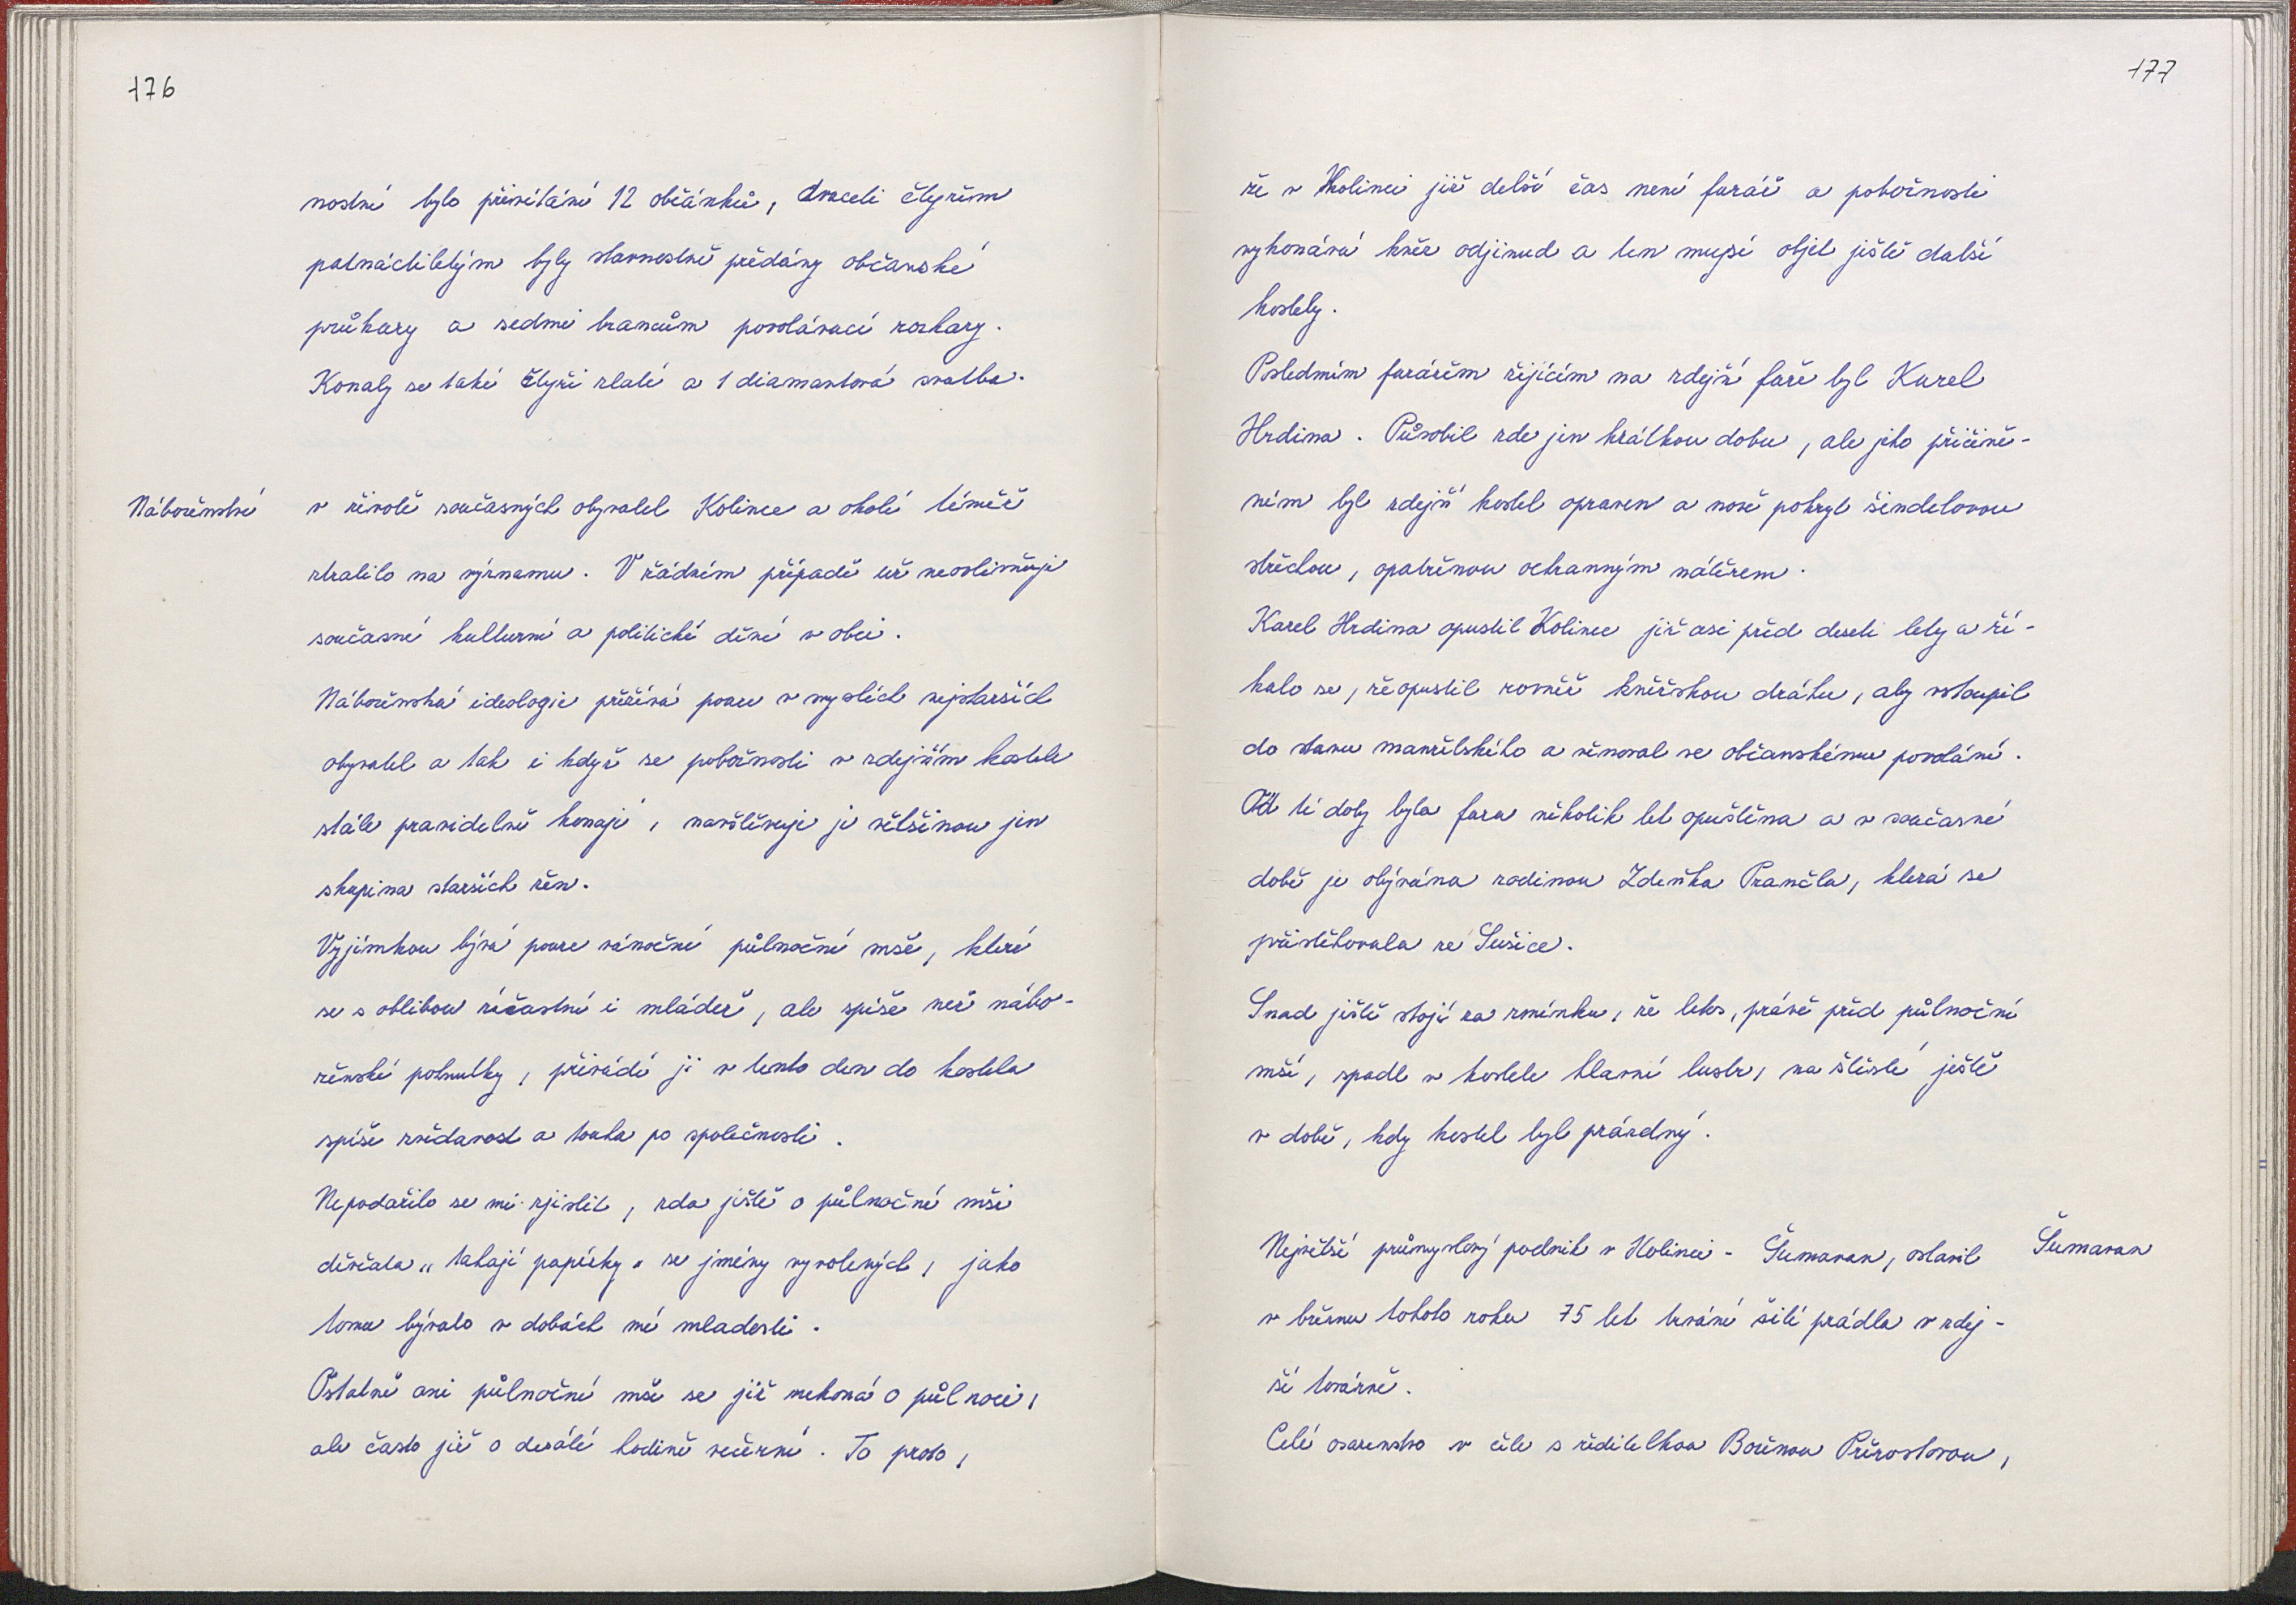 176
nostní bylo přivítání 12 občánků, dvaceti čtyřem
patnáctiletým byly slavnostně předány občanské
průkazy a sedmi brancům povolávací rozkazy.
Konaly se také čtyři zlaté a 1 diamantová svatba.
Náboženství v životě současných obyvatel Kolince a okolí téměř
ztratilo na významu. V žádném případě už neovlivňuje
současné kulturní a politické dění v obci.
Náboženská ideologie přežívá pouze v myslích nejstarších
obyvatel a tak i když se pobožnosti v zdejším kostele
stále pravidelně konají, navštěvuje je většinou jen
skupina starších žen.
Vyjímkou bývá pouze vánoční půlnoční mše, které
se s oblibou účastní i mládež, ale spíše než nábo-
ženské pohnutky, přivádí ji v tento den do kostela
spíše zvědavost a touha po společnosti.
Nepodařilo se mi zjistit, zda ještě o půlnoční mši
děvčata „tahají papírky" se jmény vyvolených, jako
tomu bývalo v dobách mé mladosti.
Ostatně ani půlnoční mše se již nekoná o půlnoci,
ale často již o desáté hodině večerní. To proto,
177
že v Kolinci již delší čas není farář a pobožnosti
vykonává kněz odjinud a ten musí objet ještě další
kostely.
Posledním farářem žijícím na zdejší faře byl Karel
Hrdina. Působil zde jen krátkou dobu, ale jeho přičině-
ním byl zdejší kostel opraven a nově pokryt šindelovou
střechou, opatřenou ochranným nátěrem.
Karel Hrdina opustil Kolinec již asi před deseti lety a ří-
kalo se, že opustil rovněž kněžskou dráhu, aby vstoupil
do stavu manželského a věnoval se občanskému povolání.
Od té doby byla fara několik let opuštěna a v současné
době je obývána rodinou Zdeňka Prančla, která se
přistěhovala ze Sušice.
Snad ještě stojí za zmínku, že letos, právě před půlnoční
mší, spadl v kostele hlavní lustr, na štěstí ještě
v době, kdy kostel byl prázdný.
Největší průmyslový podnik v Kolinci - Šumavan, oslavil Šumavan
v březnu tohoto roku 75 let trvání šití prádla v zdej-
ší továrně.
Celé osazenstvo v čele s ředitelkou Boženou Přerostovou,